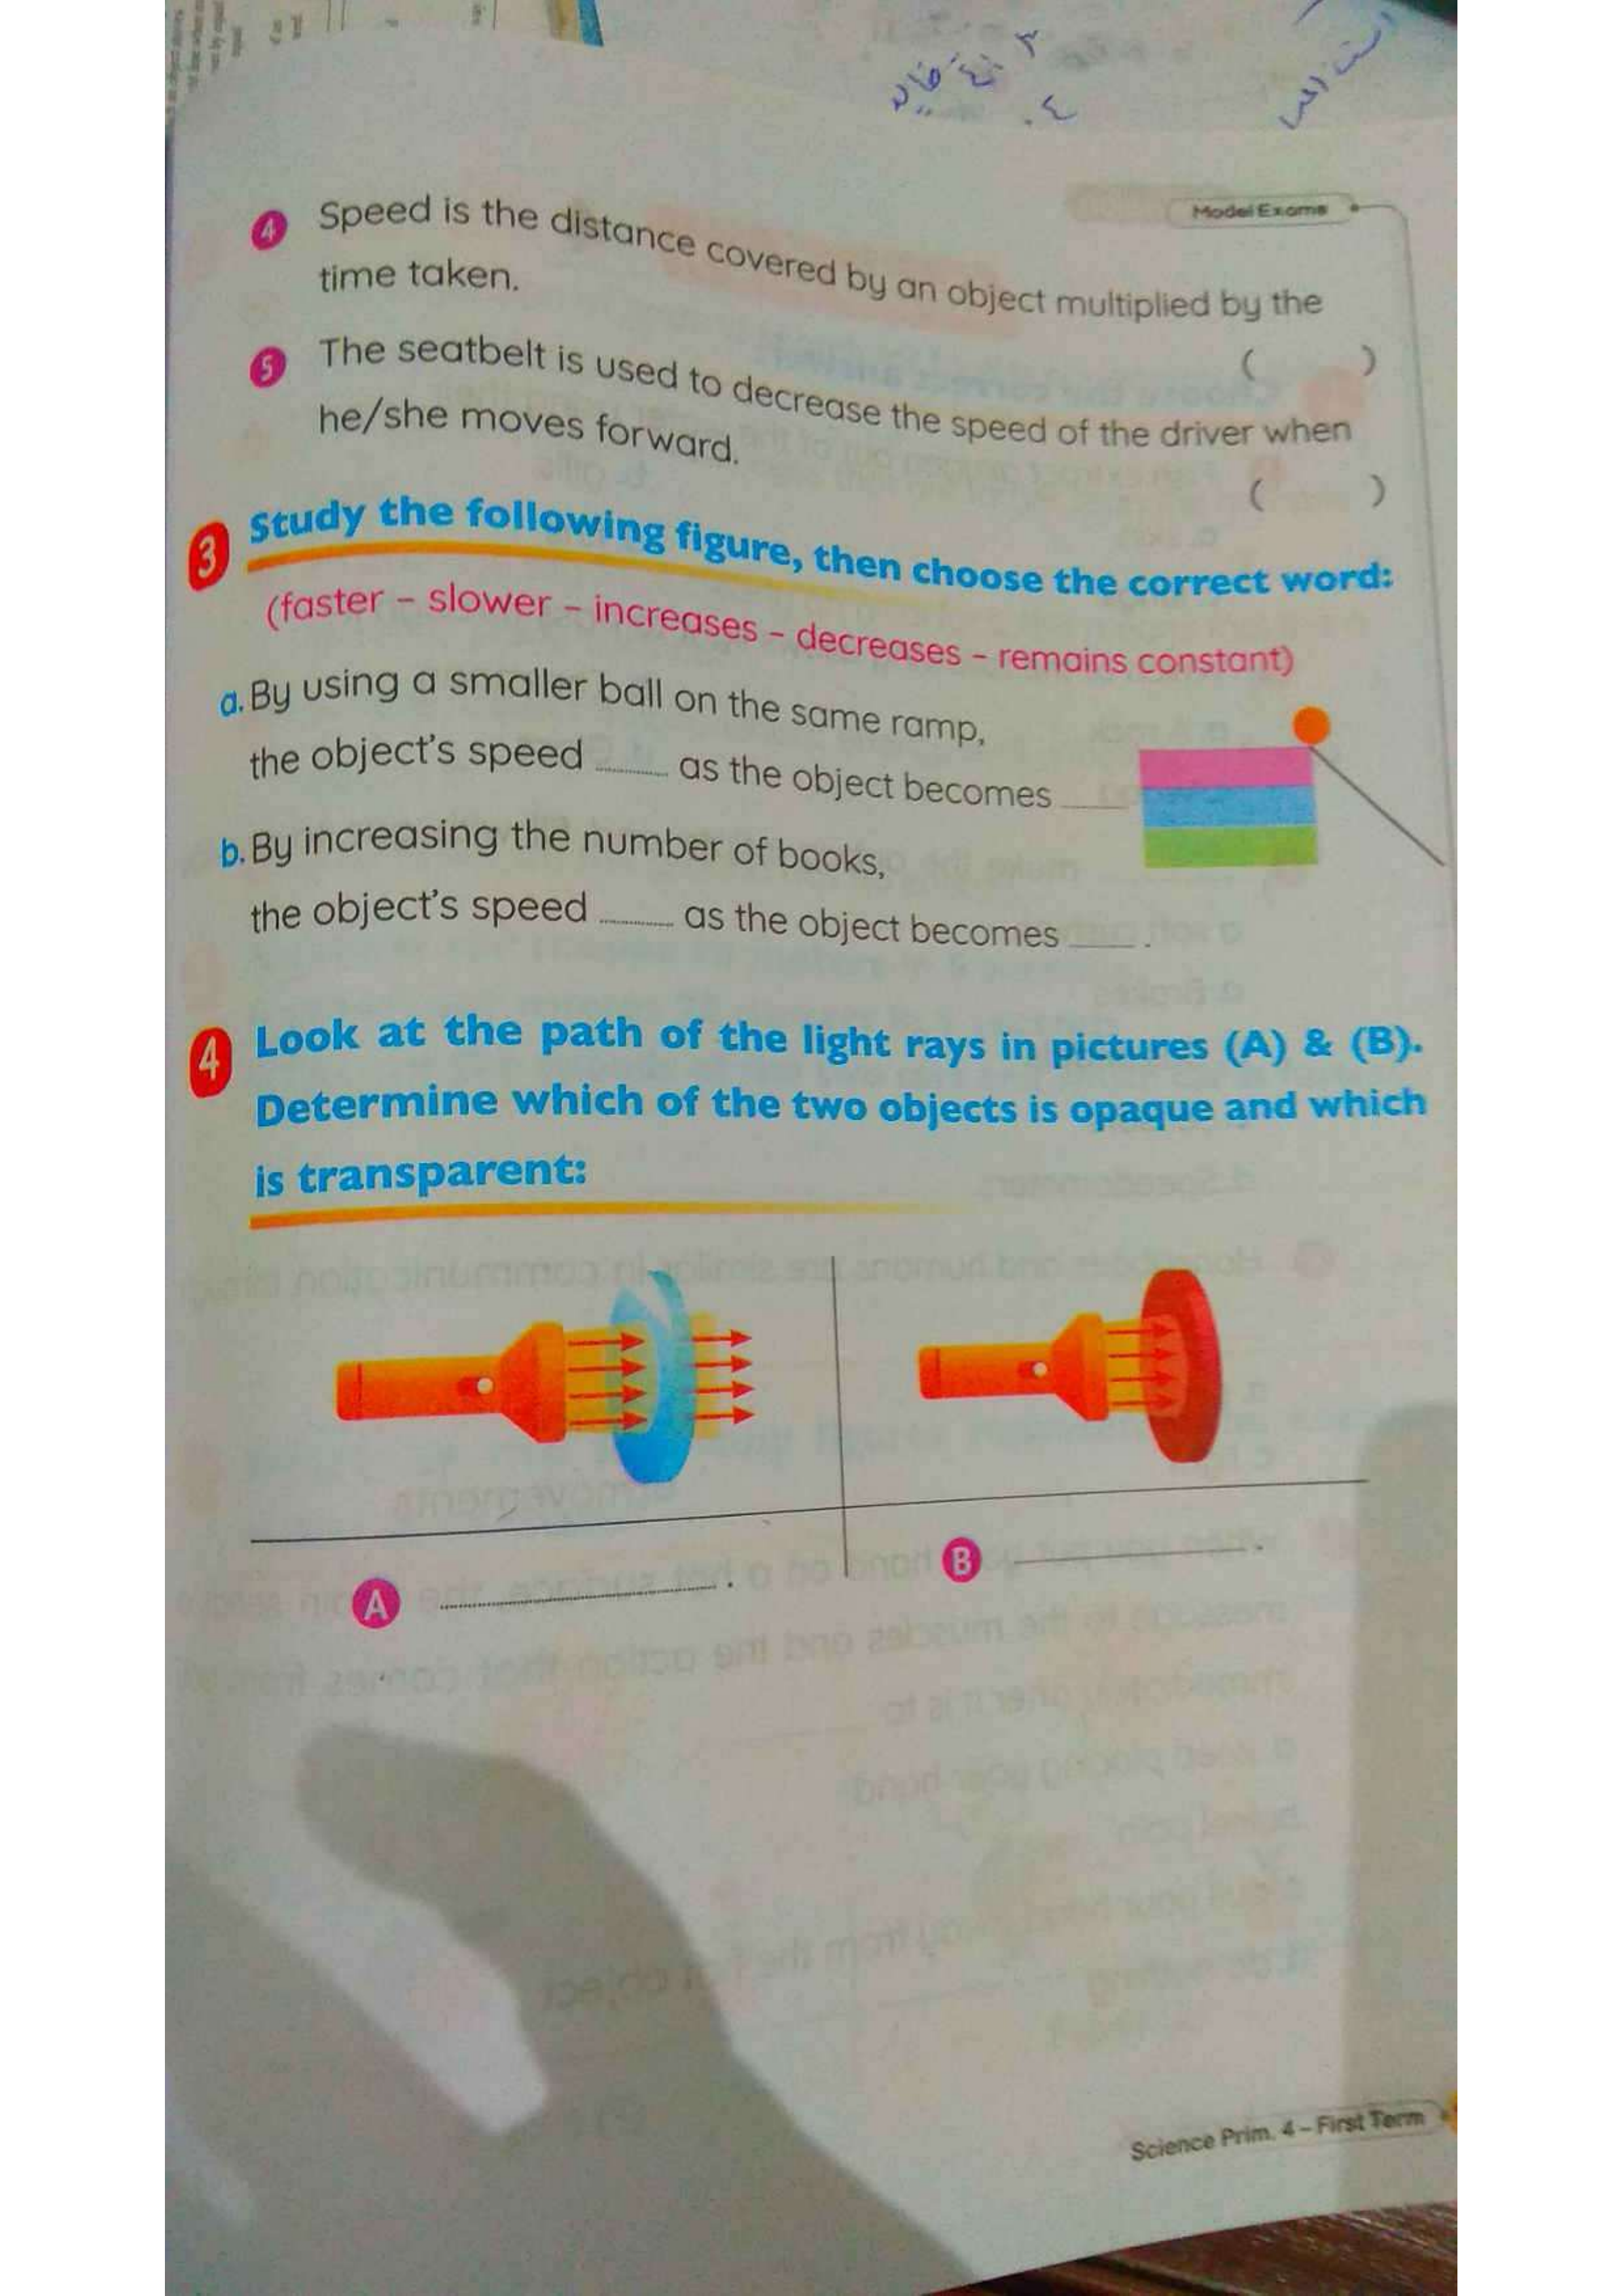 Model Exams
4 Speed is the distance covered by an object multiplied by the
time taken.
( )
5 The seatbelt is used to decrease the speed of the driver when
he/she moves forward.
( )
3 Study the following figure, then choose the correct word:
(faster – slower – increases – decreases – remains constant)
a. By using a smaller ball on the same ramp,
the object's speed ........ as the object becomes ____
b. By increasing the number of books,
the object's speed ........ as the object becomes ____ .
4 Look at the path of the light rays in pictures (A) & (B).
Determine which of the two objects is opaque and which
is transparent:
A ........................ .
B ____________ .
Science Prim. 4 – First Term